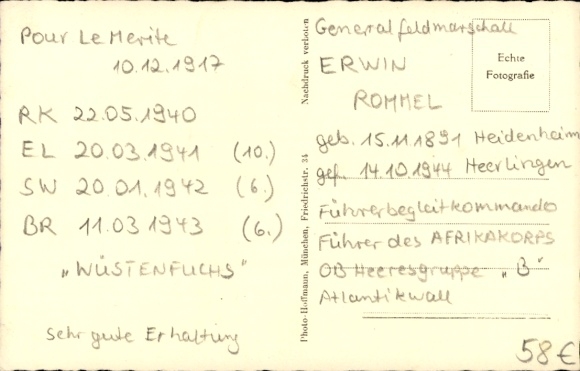 Pour Le Merite
10.12.1917
RK 22.05.1940
EL 20.03.1941 (10.)
SW 20.01.1942 (6.)
BR 11.03.1943 (6.)
„WÜSTENFUCHS"
Sehr gute Erhaltung
Nachdruck verboten
Photo-Hoffmann, München, Friedrichstr. 34
Generalfeldmarschall
ERWIN
ROMMEL
Echte
Fotografie
geb. 15.11.1891 Heidenheim
gef. 14.10.1944 Heerlingen
Führerbegleitkommando
Führer des AFRIKAKORPS
OB Heeresgruppe „B"
Atlantikwall
58€